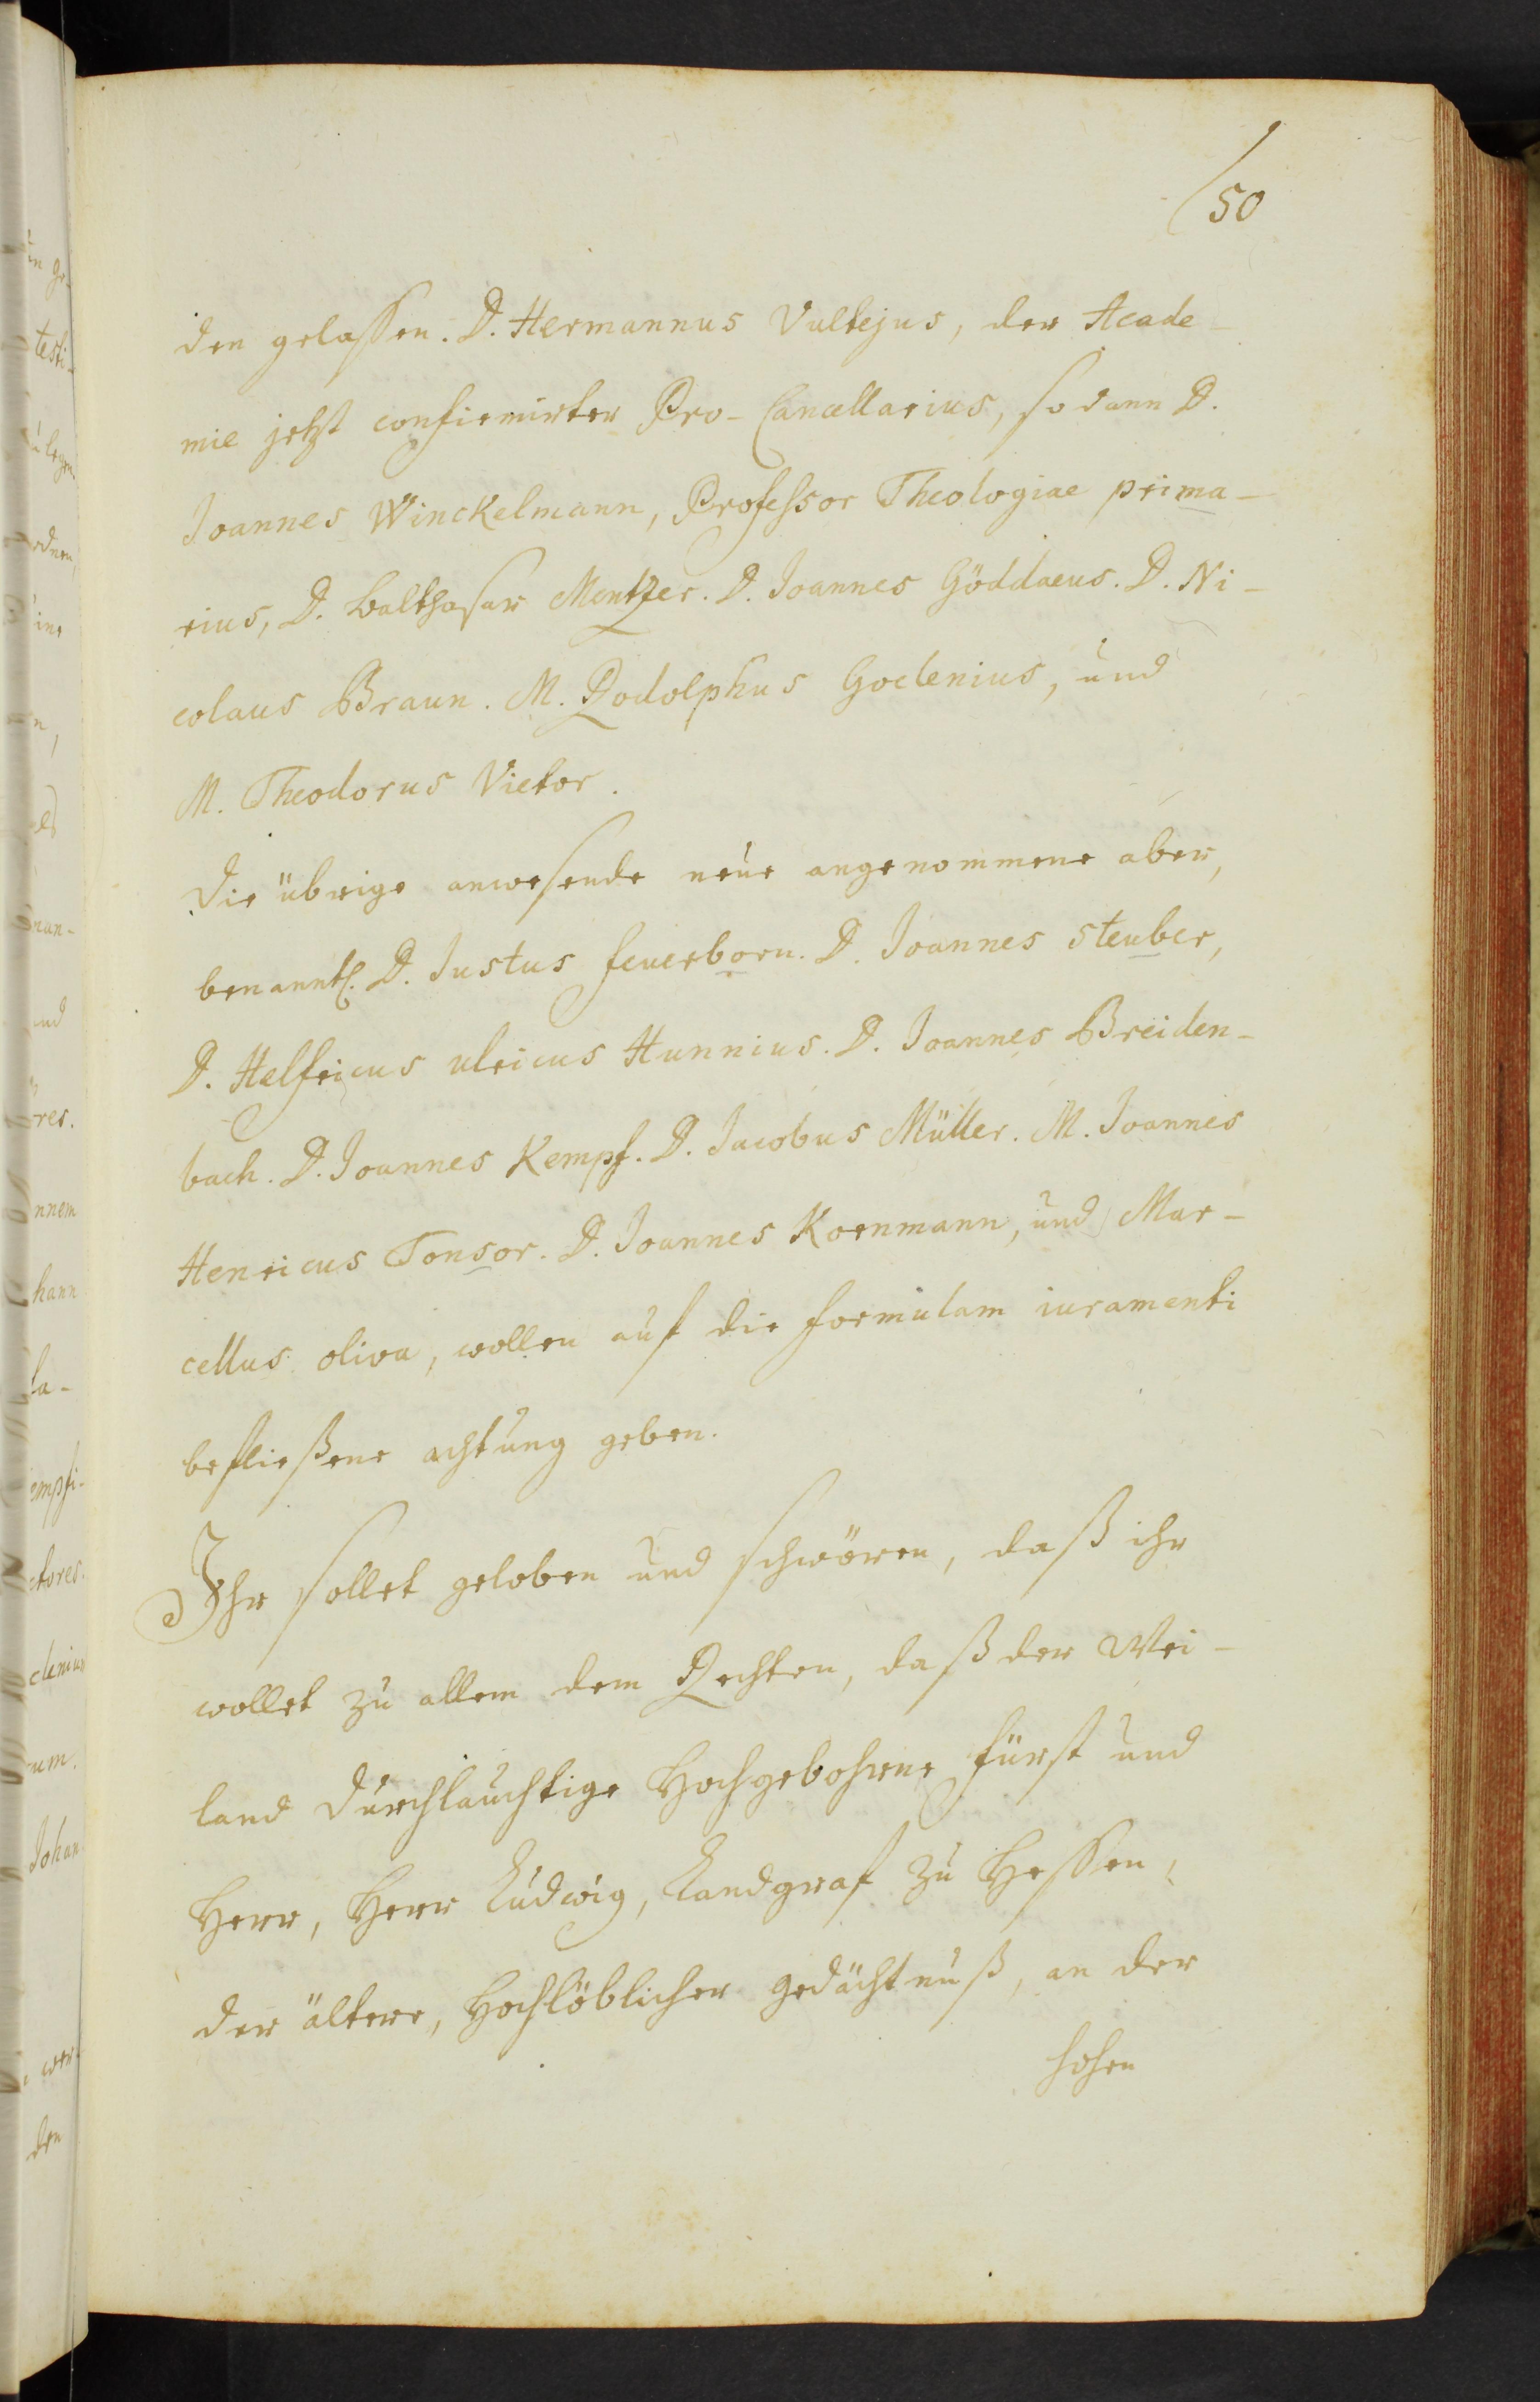 50
den gelaßen. D. Hermannus Vultejus, der Acade-
mie jetzt confirmirter Pro-Cancellarius, sodann D.
Joannes Winckelmann, Professor Theologiae prima-
rius, D. Balthasar Mentzer. D. Joannes Göddaeus. D. Ni-
colaus Braun. M. Rodolphus Goclenius, und
M. Theodorus Vietor.
Die übrige anwesende neue angenommene aber,
benanntl. D. Justus Feuerborn. D. Joannes Steuber,
D. Helfricus Ulricus Hunnius. D. Joannes Breiden-
bach. D. Joannes Kempf. D. Jacobus Müller. M. Joannes
Henricus Tonsor. D. Joannes Kornmann, und Mar-
cellus oliva, wollen auf die formulam iuramenti
befließene achtung geben.
Ihr sollet geloben und schwören, daß ihr
wollet zu allem dem Rechten, daß der Wei-
land Durchlauchtige Hochgebohrne Fürst und
Herr, Herr Ludwig, Landgraf zu Heßen,
der ältere, Hochlöblicher gedächtnuß, an der
hohen